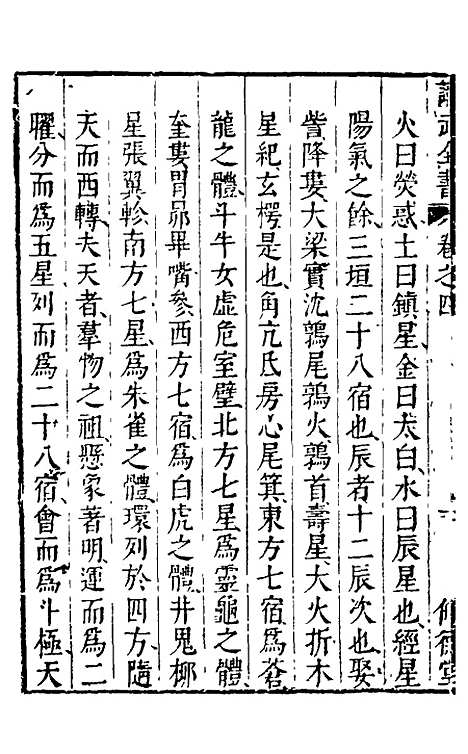 武全書
卷之四
火曰熒惑土曰鎮星金曰太白水曰辰星也經星
陽氣之餘三垣二十八宿也辰者十二辰次也娶
訾降婁大梁實沈鶉尾鶉火鶉首壽星大火折木
星紀玄枵是也角亢氐房心尾箕東方七宿為蒼
龍之體斗牛女虛危室壁北方七星為靈龜之體
奎婁胃昴畢嘴參西方七宿為白虎之體井鬼柳
星張翼軫南方七星為朱雀之體環列於四方隨
天而西轉夫天者羣物之祖懸象著明運而為二
曜分而為五星列而為二十八宿會而為斗極天